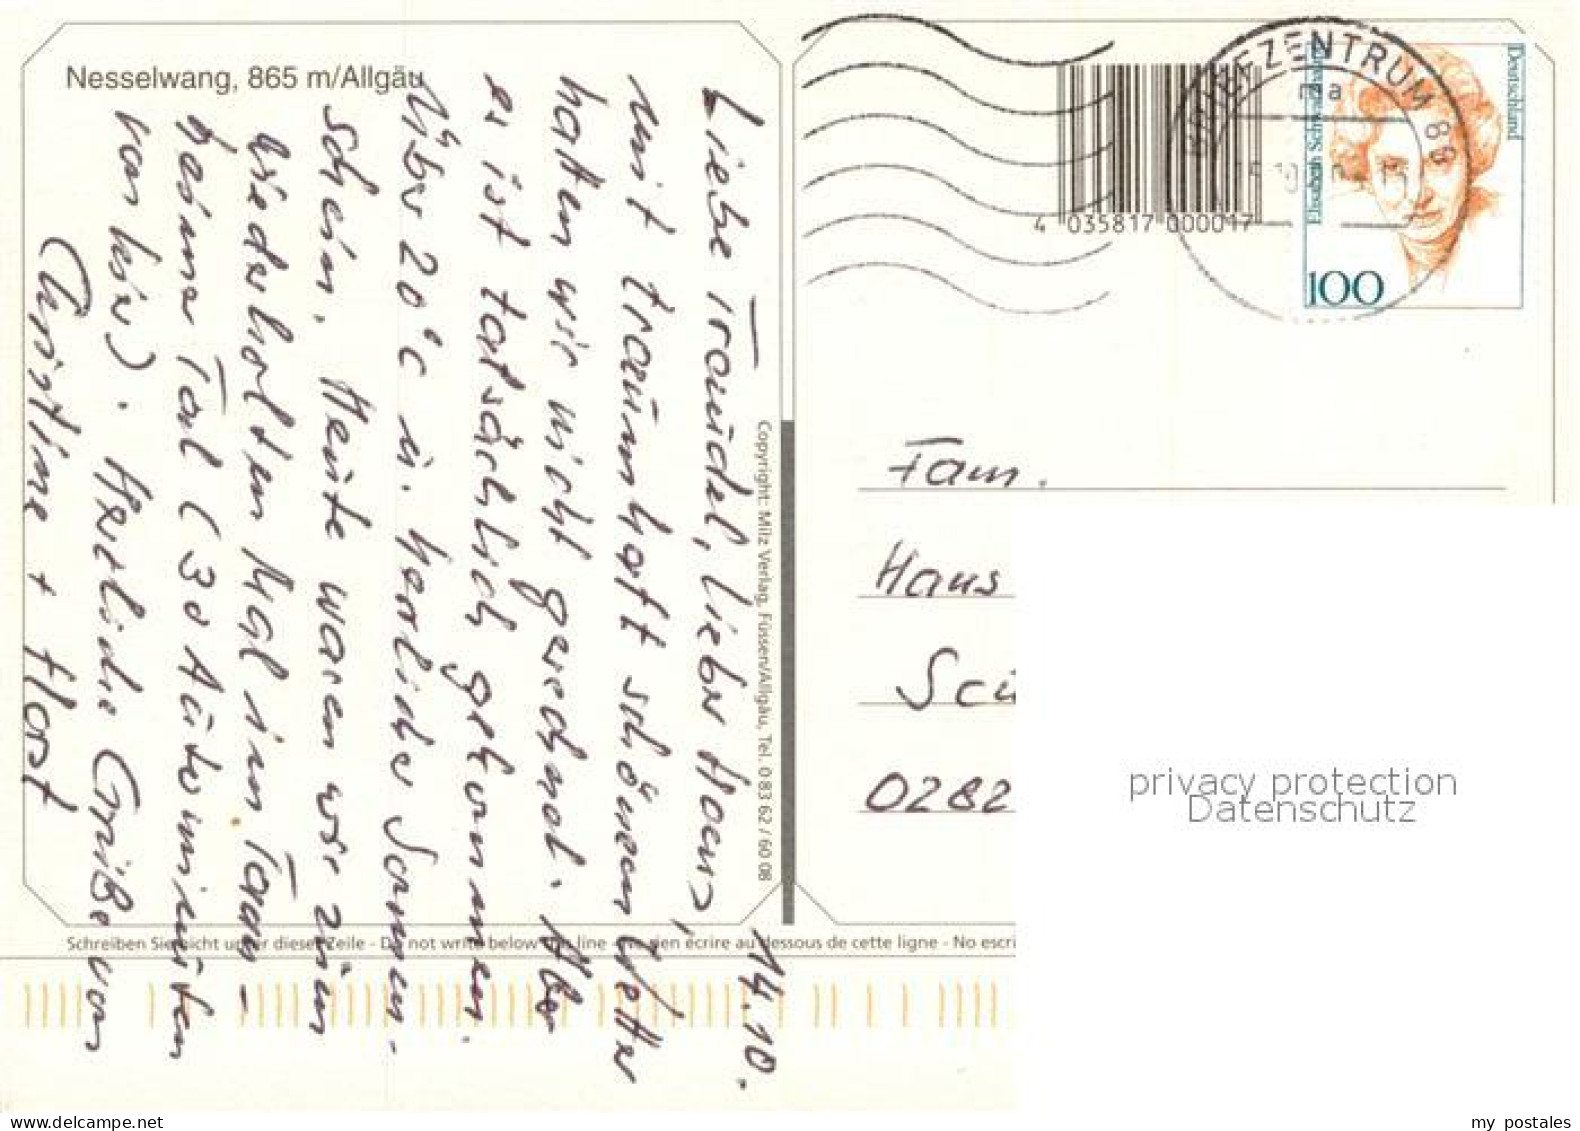 Nesselwang, 865 m/Allgäu
14.10.
Liebe Traudel, lieber Hocus,
mit traumhaft schönem Wetter
hatten wir nicht gerechnet. Aber
es ist tatsächlich gekommen.
Über 20°C u. herrlicher Sonnen-
schein. Heute waren wir zum
wiederholten Mal im Tann-
heimer Tal (30 Autominuten
von hier). Herzliche Grüße von
Christine + Horst
Copyright: Milz Verlag, Füssen/Allgäu, Tel. 0 83 62 / 60 08
4 035817 000017
BRIEFZENTRUM 88
ma
Deutschland
Elisabeth Schwarzhaupt
100
Fam.
Haus
Scu
0282
Schreiben Sie nicht unter dieser Zeile - Do not write below this line - Ne rien écrire au dessous de cette ligne - No escri
privacy protection
Datenschutz
my postales
www.delcampe.net